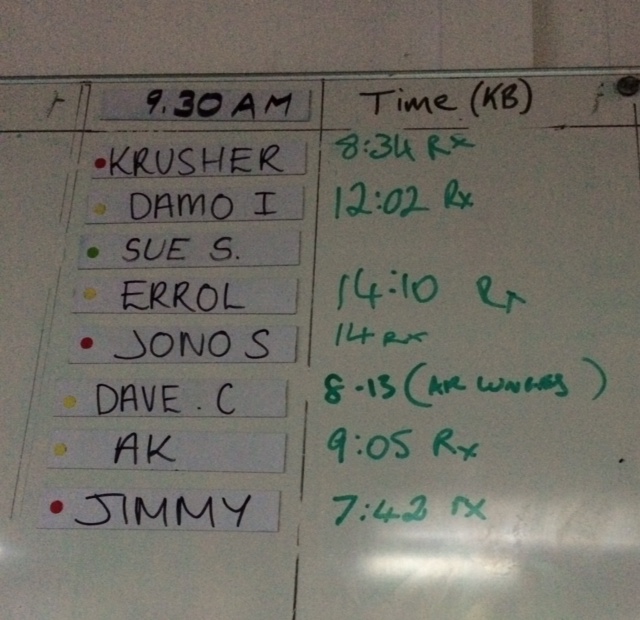 9.30 AM Time (KB)
KRUSHER 8:34 Rx
DAMO I 12:02 Rx
SUE S.
ERROL 14:10 Rx
JONO S 14 RX
DAVE. C 8-15 (AIR
AK 9:05 Rx
JIMMY 7:42 rx